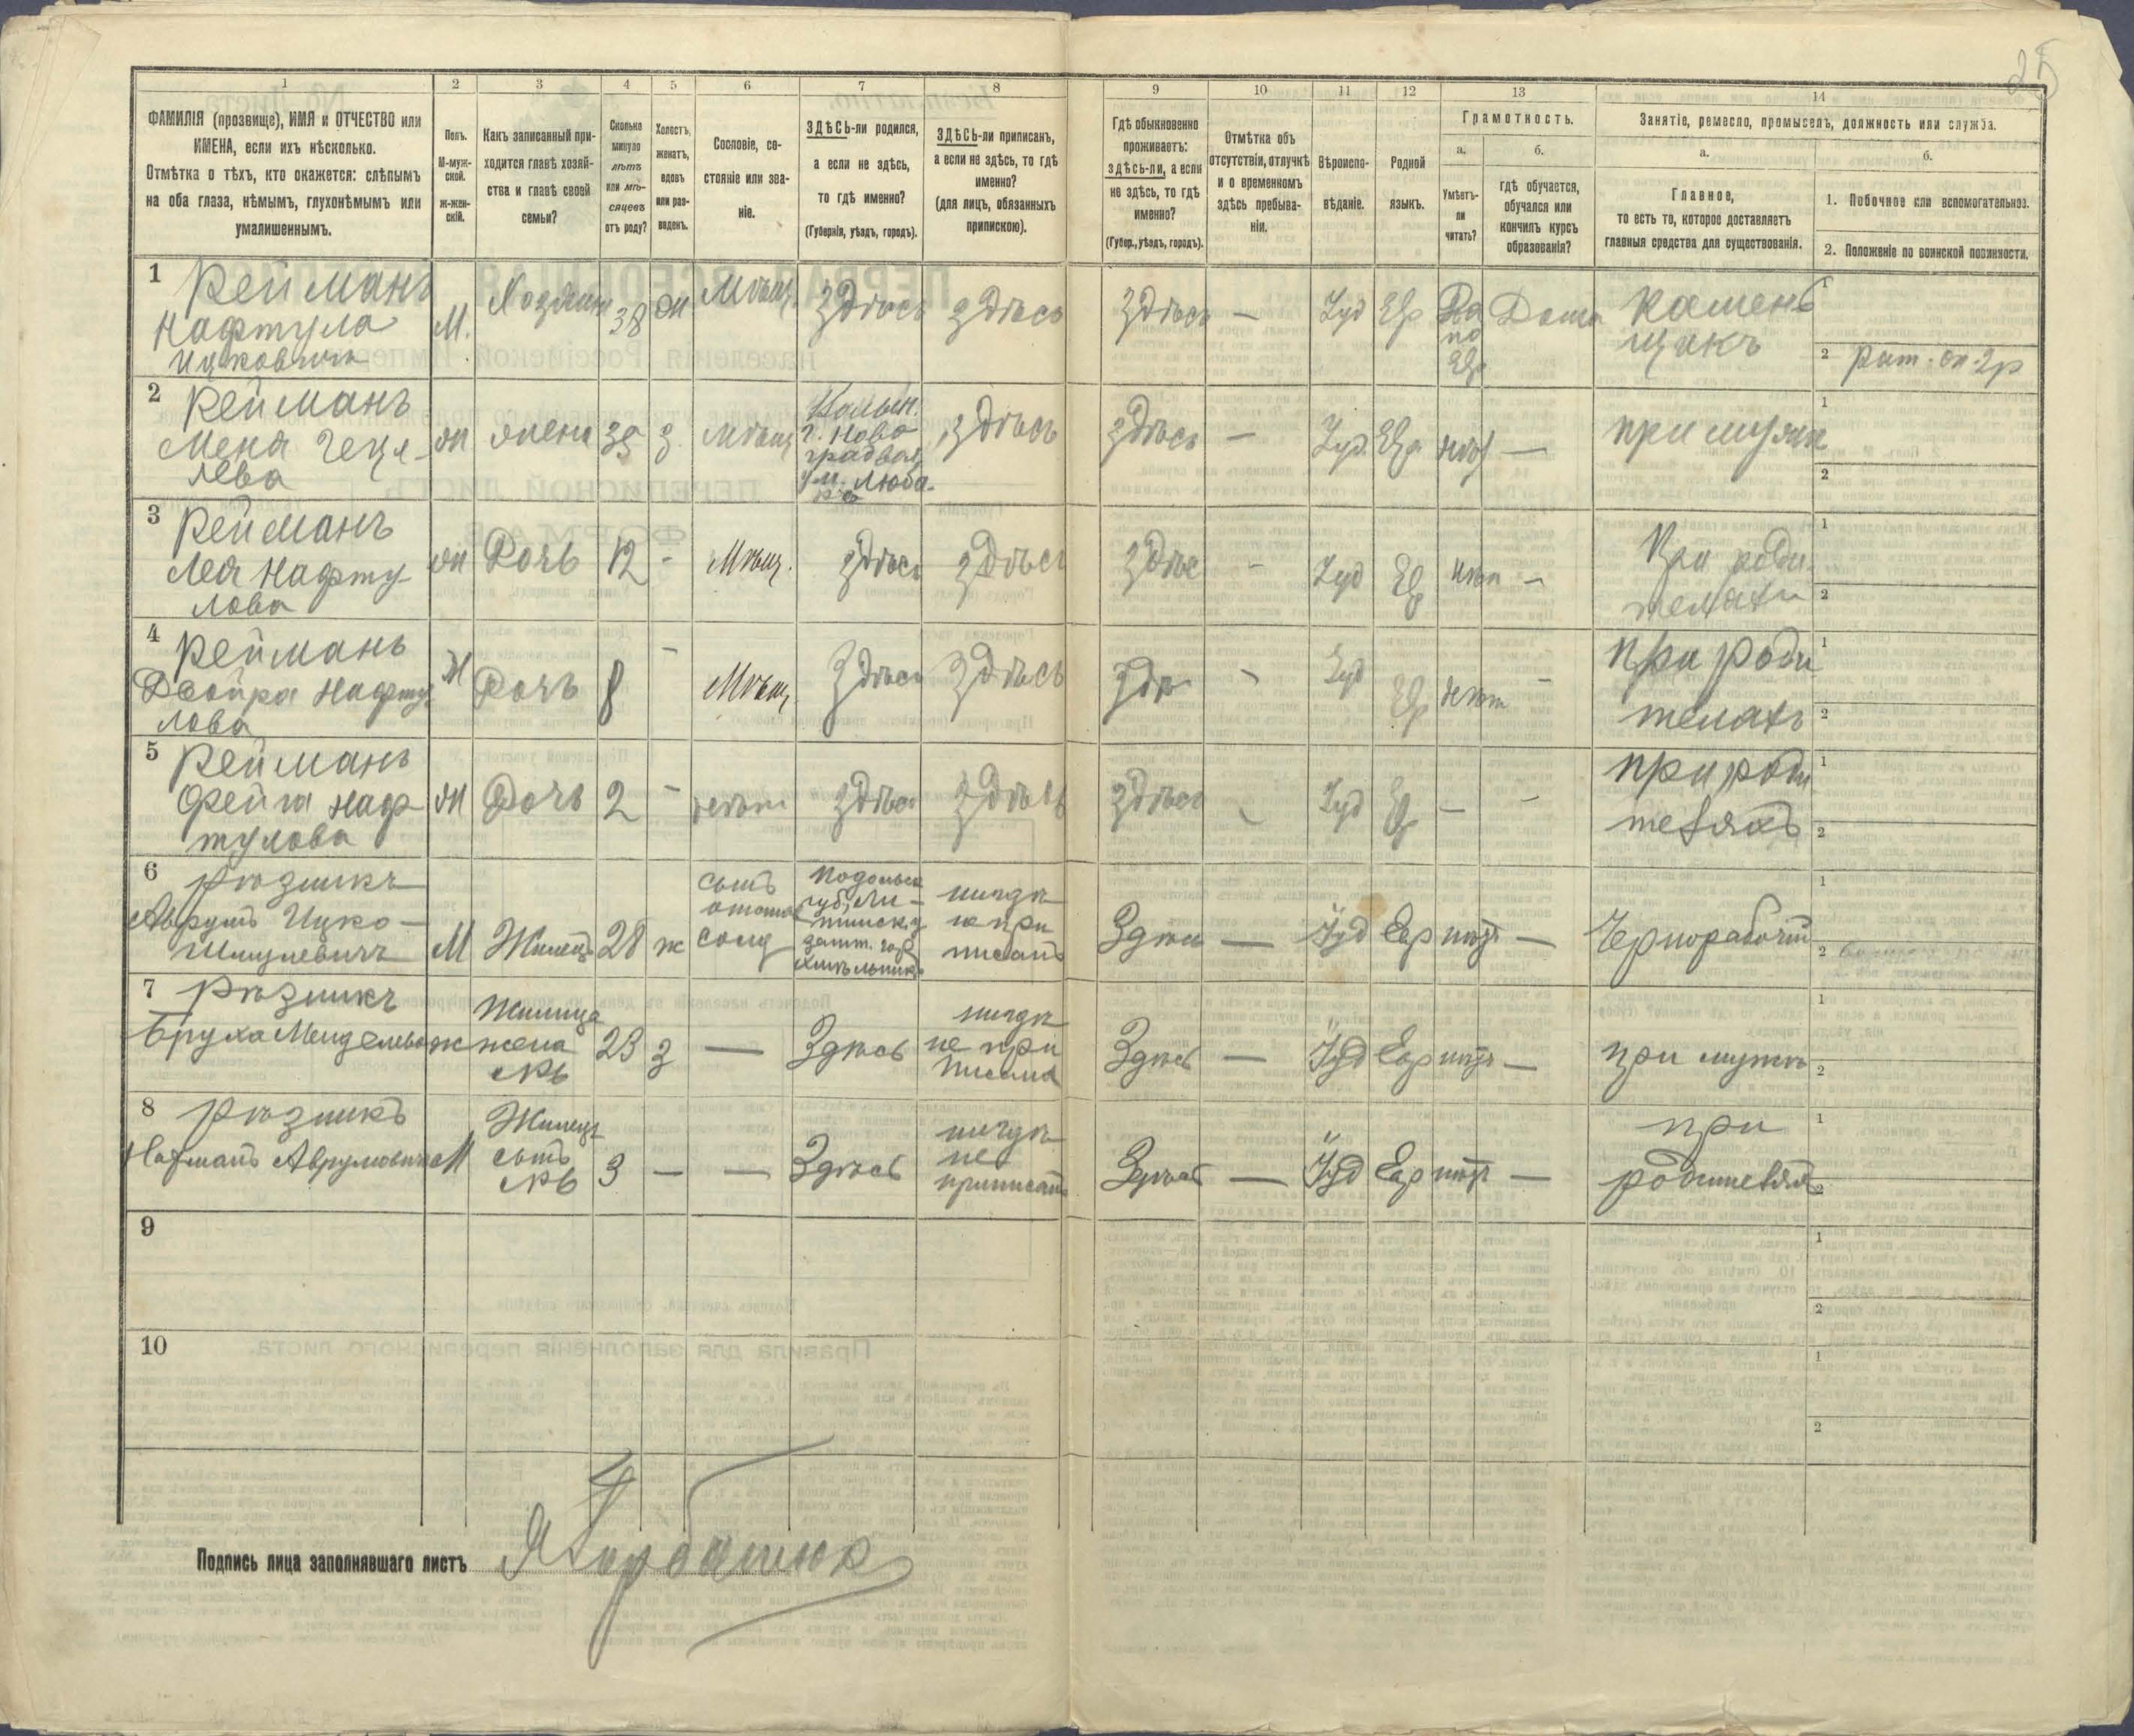 25
1
2
3
4
5
6
7
8
9
10
11
12
13
14
ФАМИЛІЯ (прозвище), ИМЯ и ОТЧЕСТВО или
ИМЕНА, если ихъ нѣсколько.
Отмѣтка о тѣхъ, кто окажется: слѣпымъ
на оба глаза, нѣмымъ, глухонѣмымъ или
умалишеннымъ.
Полъ.
М-муж-
ской.
ж-жен-
скій.
Какъ записанный при-
ходится главѣ хозяй-
ства и главѣ своей
семьи?
Сколько
минуло
лѣтъ
или мѣ-
сяцевъ
отъ роду?
Холостъ,
женатъ,
вдовъ
или раз-
веденъ.
Сословіе, со-
стояніе или зва-
ніе.
ЗДѢСЬ-ли родился,
а если не здѣсь,
то гдѣ именно?
(Губернія, уѣздъ, городъ).
ЗДѢСЬ-ли приписанъ,
а если не здѣсь, то гдѣ
именно?
(для лицъ, обязанныхъ
припискою).
Гдѣ обыкновенно
проживаетъ:
здѣсь-ли, а если
не здѣсь, то гдѣ
именно?
(Губер., уѣздъ, городъ).
Отмѣтка объ
отсутствіи, отлучкѣ
и о временномъ
здѣсь пребыва-
ніи.
Вѣроиспо-
вѣданіе.
Родной
языкъ.
Грамотность.
а.
Умѣетъ-
ли
читать?
б.
гдѣ обучается,
обучался или
кончилъ курсъ
образованія?
Занятіе, ремесло, промыселъ, должность или служба.
а.
Главное,
то есть то, которое доставляетъ
главныя средства для существованія.
б.
1. Побочное или вспомогательное.
2. Положеніе по воинской повинности.
1 Рейманъ
Нафтула
Ицковичъ
М.
Хозяинъ
38
ж
Мѣщ.
Здѣсь
здѣсь
здѣсь
—
Іуд
Евр
Да
по
Евр
Дома
Камень
щикъ
1
2 Рат. оп. 2р
2 Рейманъ
Мена Геця-
лева
ж
жена
35
з.
мѣщ
Волын.
г. Ново
градвол
у м. Люба-
ръ
здѣсь
здѣсь
—
Іуд.
Евр
нѣт
—
при мужѣ
1
2
3 Рейманъ
Лея Нафту
лова
ж
Дочь
12
-
Мѣщ.
здѣсь
здѣсь
здѣс
-
Іуд
Ев
нѣт
—
При роди
теляхъ
1
2
4 Рейманъ
Двойра Нафту
лова
ж
Дочь
8
-
Мѣщ
Здѣсь
здѣсь
здѣ
-
Іуд
Ев
нѣт
-
При роди
теляхъ
1
2
5 Рейманъ
Фейга Наф
тулова
ж
Дочь
2
-
здѣсь
здѣсь
здѣсь
-
Іуд
Ев
—
-
При роди
теляхъ
1
2
6 Рѣзникъ
Аврумъ Ицко-
Шмулевичъ
М
Жилецъ
28
ж
сынъ
отстав
солд
Подольск
губ, Ли-
тинск. у
зашт. гор
Хмѣльникъ
нигдѣ
не при
писанъ
Здѣсь
—
Іуд
Евр
нѣтъ
—
Чернорабочій
1
2
7 Рѣзникъ
Бруха Менделева
ж
Жилица
жена
№6
23
з
—
Здѣсь
нигдѣ
не при
писана
Здѣсь
—
Іуд
Евр
нѣтъ
—
при мужѣ
1
2
8 Рѣзникъ
Нахманъ Аврумовичъ
М
Жилецъ
сынъ
№6
3
—
—
Здѣсь
нигдѣ
не
приписанъ
Здѣсь
—
Іуд
Евр
нѣтъ
—
при
родителяхъ
1
2
9
1
2
10
1
2
Подпись лица заполнявшаго листъ